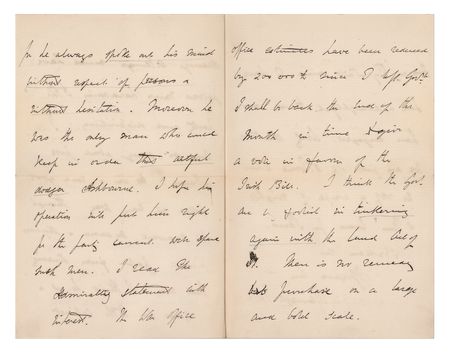 for he always spoke out his mind
without respect of persons &
without hesitation. Moreover he
was the only man who could
keep in order that artful
dodger Ashbourne. I hope his
operation will put him right
for the party cannot well spare
such men. I read the
Admiralty statement with
interest. The War Office
office estimates have been reduced
by 200 000£ since I left Govt.
I shall be back the end of the
month in time to give
a vote in favour of the
Irish Bill. I think the Govt.
are in tinkering
again with the Land Act of
81. There is no remedy
but purchase on a large
and bold scale.